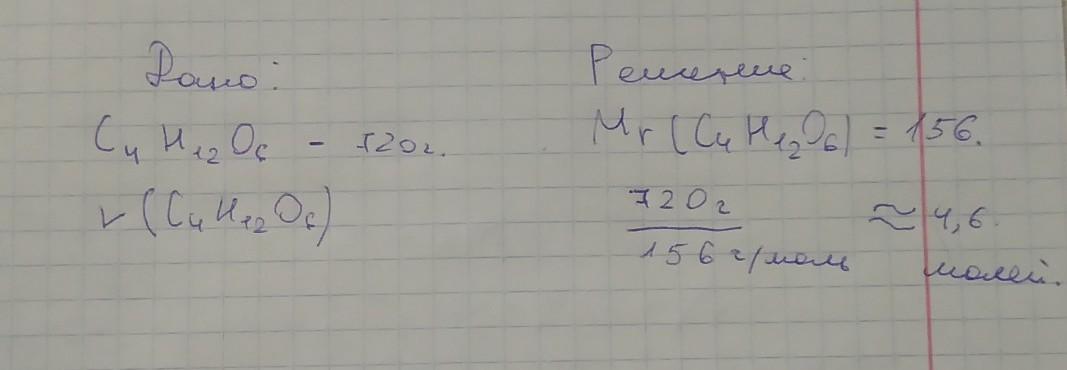 Дано:
C₄H₁₂O₆ - 720г.
ν (C₄H₁₂O₆)
Решение:
Mr (C₄H₁₂O₆) = 156.
720г
156 г/моль
≈ 4,6
молей.